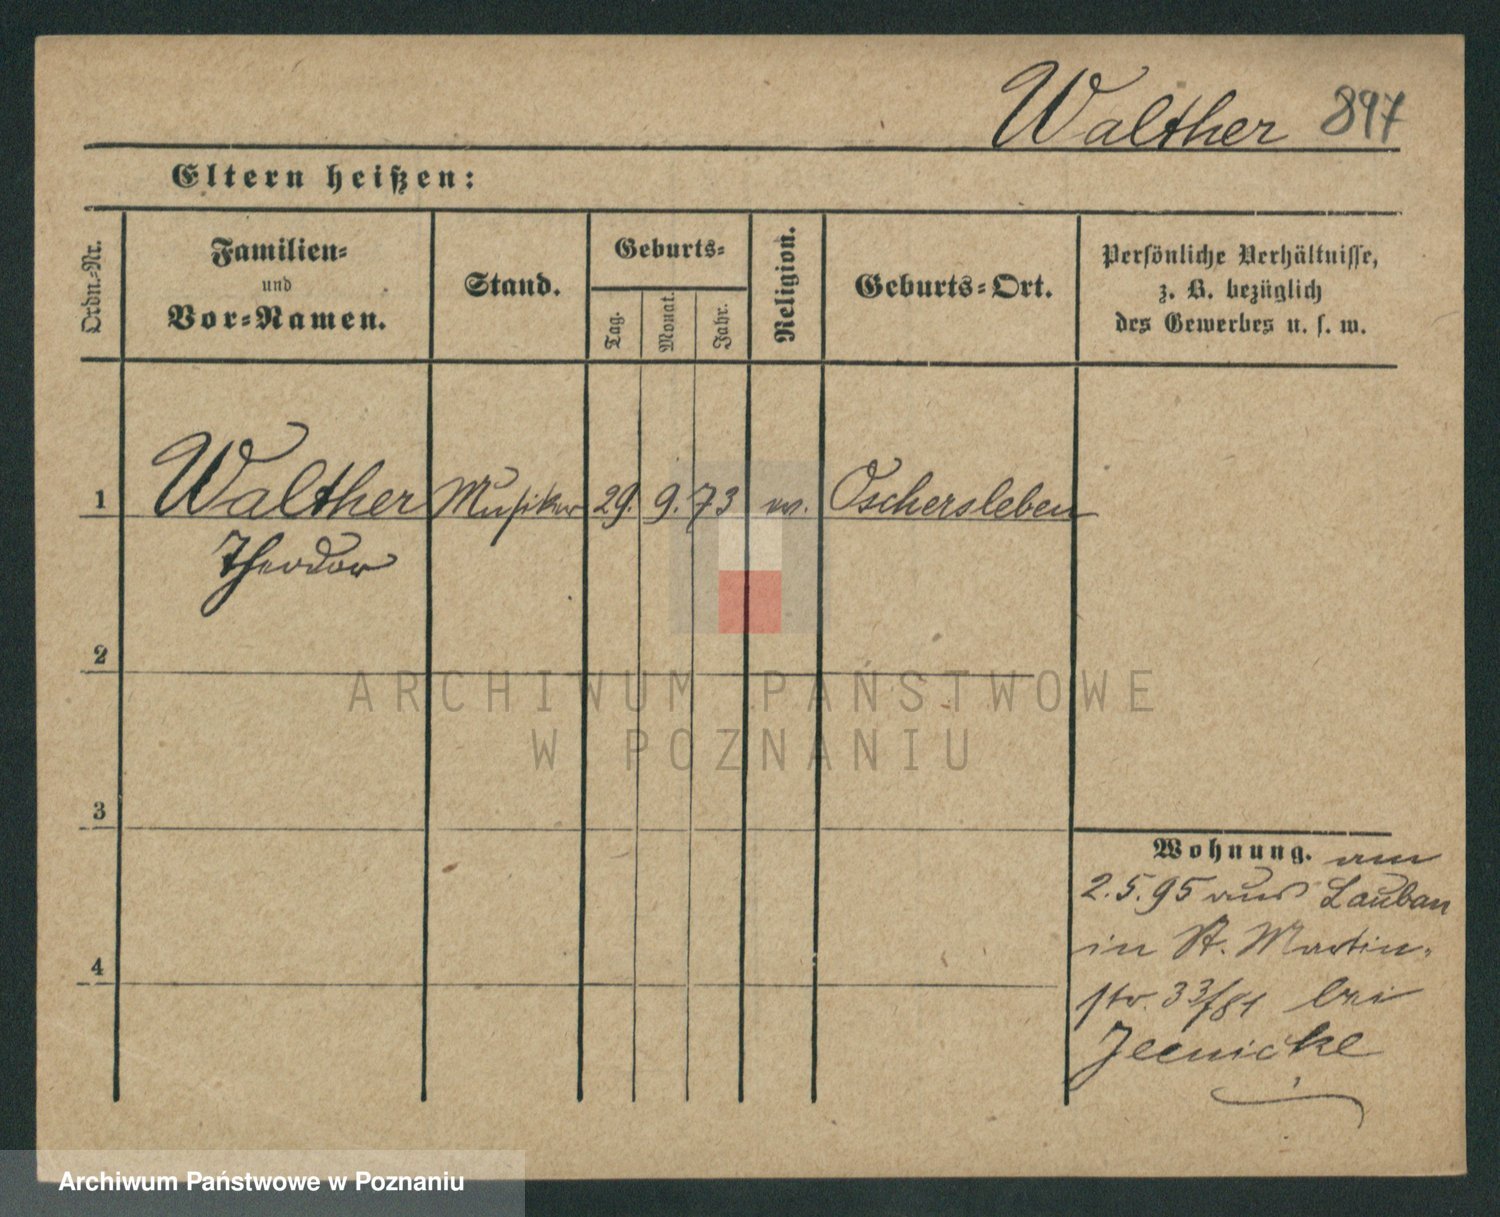 Walther 897
Eltern heißen:
Ordn.-Nr.
Familien-
und
Vor-Namen.
Stand.
Geburts-
Tag.
Monat.
Jahr.
Religion.
Geburts-Ort.
Persönliche Verhältnisse,
z. B. bezüglich
des Gewerbes u. s. w.
1 Walther Musiker 29. 9. 73 Oschersleben
Theodor
2
3
4
Wohnung. am
2.5.95 aus Lauban
in St. Martin-
str. 33/81 bei
ARCHIWUM PAŃSTWOWE
W POZNANIU
Archiwum Państwowe w Poznaniu